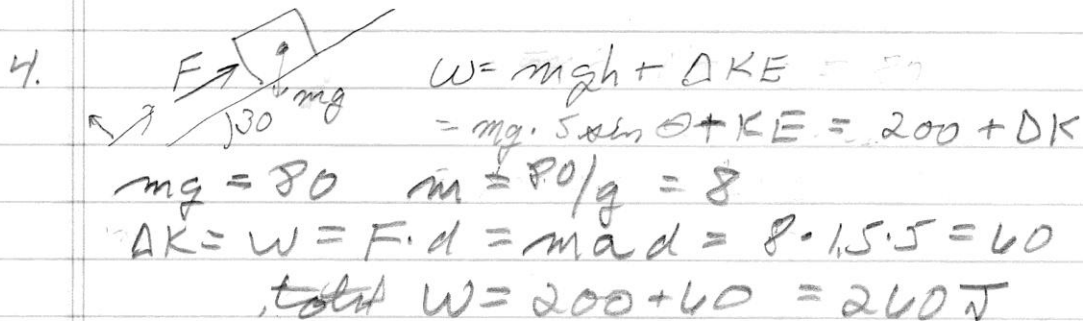 4.
F mg 30
W = mgh + ΔKE
= mg · 5 sin θ + KE = 200 + ΔK
mg = 80 m = 80/g = 8
ΔK = W = F·d = mad = 8·1.5·5 = 60
total W = 200 + 60 = 260 J